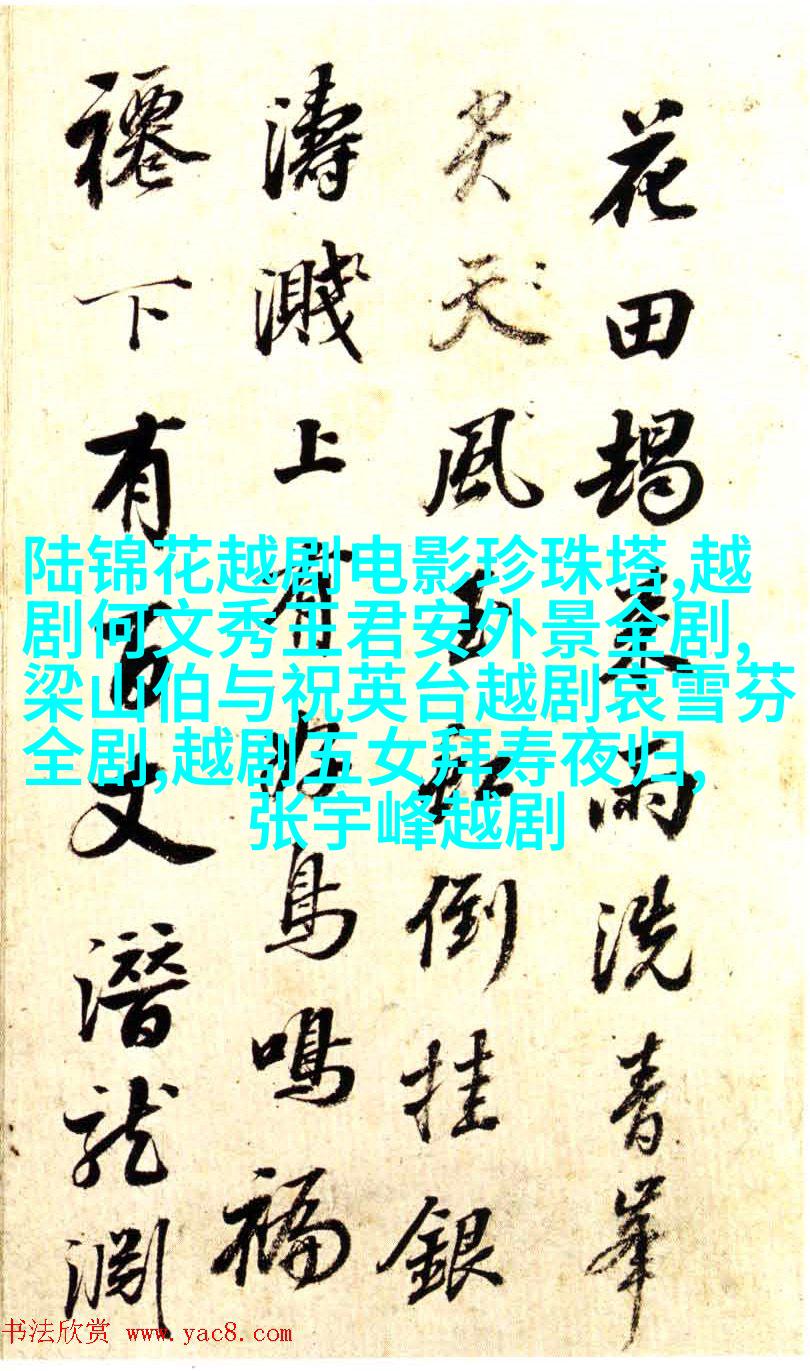 花田蝎暴雨洗青峯
尖天風玉虹倒挂銀
濤濺上有飛鳥鳴福
禪下有百丈潛龍淵
陆锦花越剧电影珍珠塔,越
剧何文秀王君安外景全剧,
梁山伯与祝英台越剧袁雪芬
全剧,越剧五女拜寿夜归,
张宇峰越剧
书法欣赏 www.yac8.com